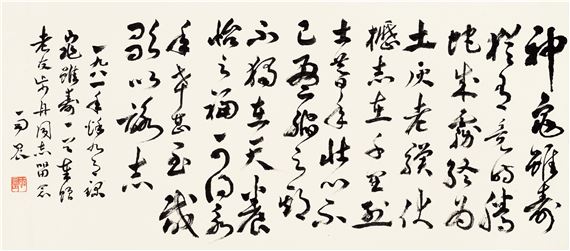 神龜雖壽
猶有竟時騰
蛇乘霧終為
土灰老驥伏
櫪志在千里烈
士暮年壯心不
已盈縮之期
不獨在天養
怡之福可得永
年幸甚至哉
歌以詠志
一九八一年九月錄
龜雖壽一首奉贈
老友步丹同志留念